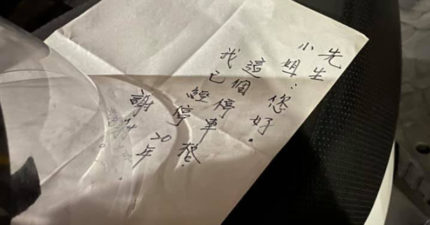 先生
小姐:您好.
這個停車格
我已經停20年
謝謝